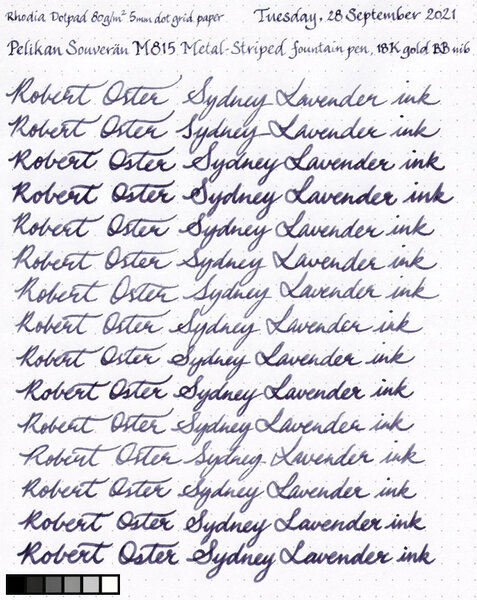 Rhodia Dotpad 80g/m² 5mm dot grid paper Tuesday, 28 September 2021
Pelikan Souverän M815 Metal-Striped fountain pen, 18K gold BB nib
Robert Oster Sydney Lavender ink
Robert Oster Sydney Lavender ink
Robert Oster Sydney Lavender ink
Robert Oster Sydney Lavender ink
Robert Oster Sydney Lavender ink
Robert Oster Sydney Lavender ink
Robert Oster Sydney Lavender ink
Robert Oster Sydney Lavender ink
Robert Oster Sydney Lavender ink
Robert Oster Sydney Lavender ink
Robert Oster Sydney Lavender ink
Robert Oster Sydney Lavender ink
Robert Oster Sydney Lavender ink
Robert Oster Sydney Lavender ink
Robert Oster Sydney Lavender ink